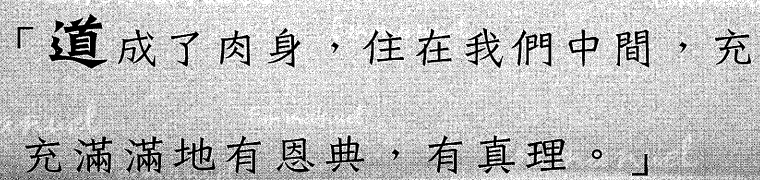 「道成了肉身，住在我們中間，充
充滿滿地有恩典，有真理。」